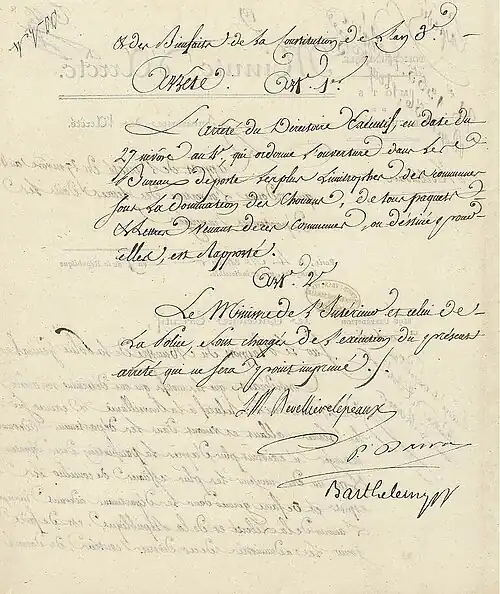 & des Bienfaits de la Constitution de l'an 3e.
Arrete. Art. 1er.
L'arrêté du Directoire Exécutif, en date du
27 nivôse an 4e, qui ordonne l'ouverture dans les
Bureaux de poste les plus Limitrophes des communes
sous la domination des Chouans, de tous paquets
& Lettres venans de ces Communes, ou destinés pour
elles, est Rapporté.
Art. 2e.
Le Ministre de l'Interieur et celui de
La Police, sont chargés de l'exécution du présent
arrêté qui ne sera point imprimé ./.
L. M. Revellière Lépeaux
P. Barras
Barthelemy